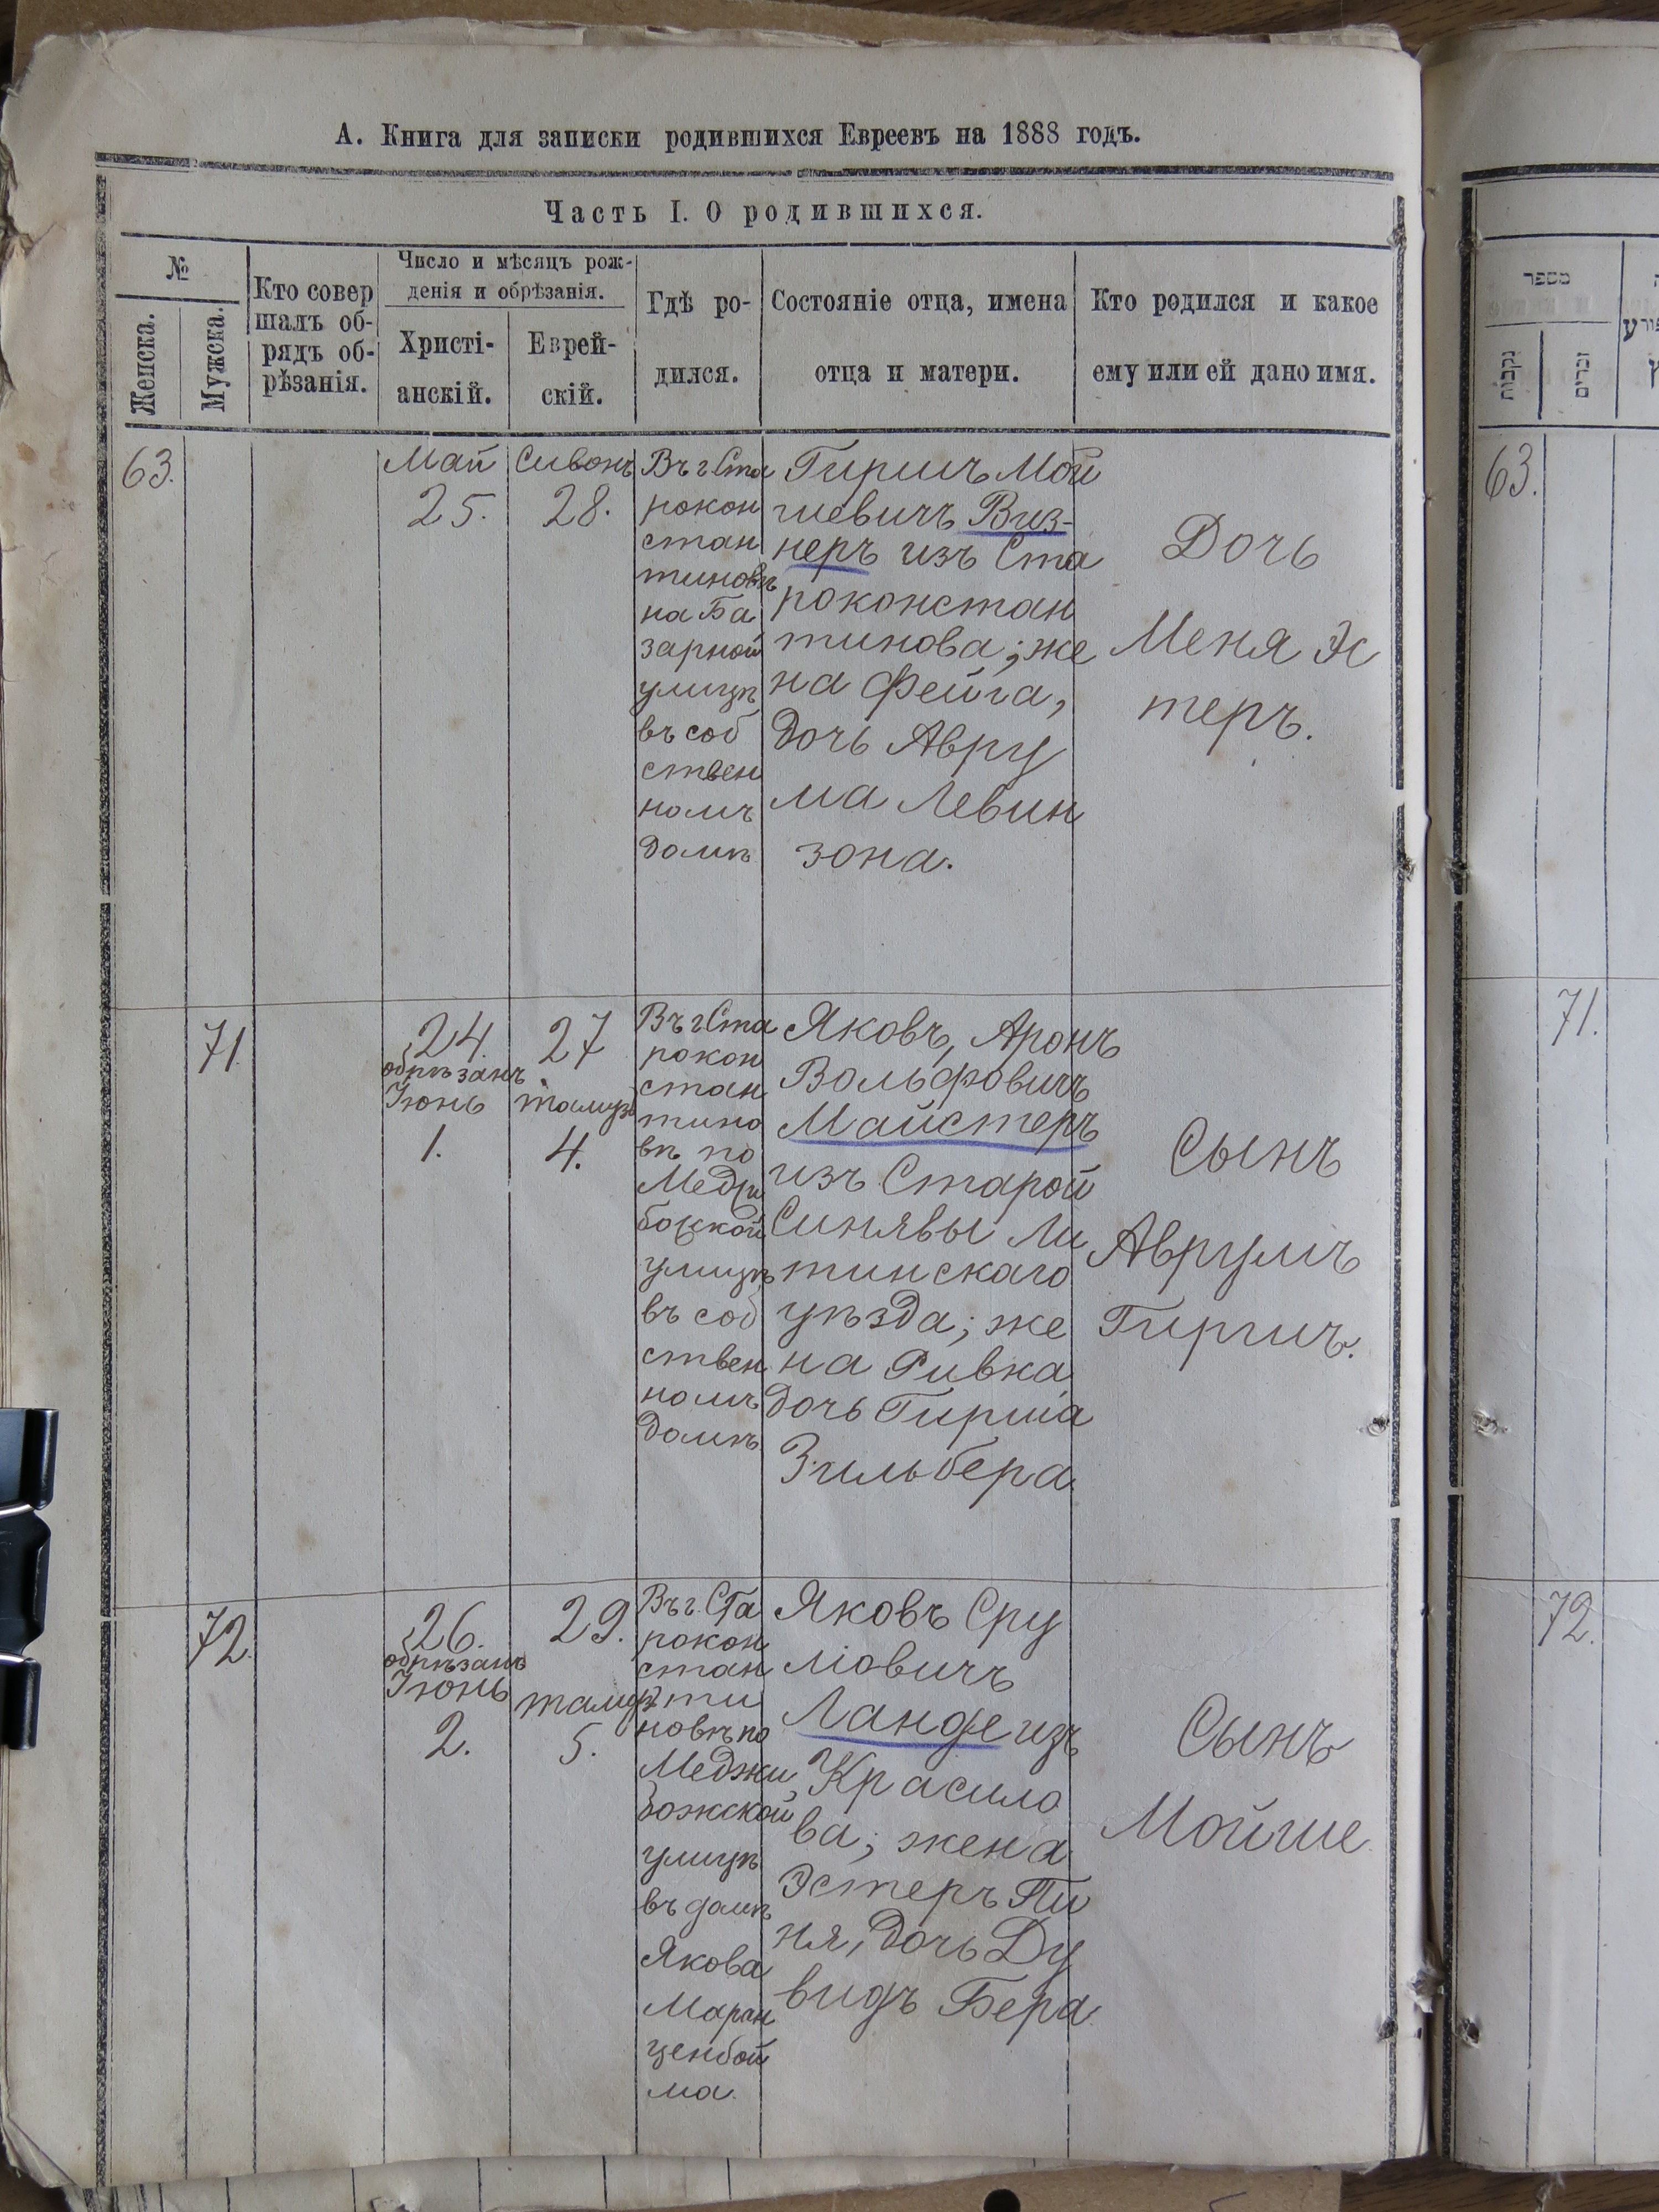 А. Книга для записки родившихся Евреевъ на 1888 годъ.
Часть I. О родившихся.
№
Женска.
Мужска.
Кто совер
шалъ об-
рядъ об-
рѣзанія.
Число и мѣсяцъ рож-
денія и обрѣзанія.
Христі-
анскій.
Еврей-
скій.
Гдѣ ро-
дился.
Состояніе отца, имена
отца и матери.
Кто родился и какое
ему или ей дано имя.
63.
Май
25.
Сивонъ
28.
Въ г Ста
рокон
стан
тиновѣ
на Ба
зарной
улицѣ
въ соб
ствен
номъ
домѣ
Гиршъ Мой
шевичъ Виз-
неръ изъ Ста
роконстан
тинова; же
на Фейга,
дочь Авру
ма Левин
зона.
Дочь
Меня Эс
теръ.
71.
24.
обрѣзанъ
Іюнь
1.
27
тамузъ
4.
Въ г Ста
рокон
стан
тино
вѣ по
Меджи
боцкой
улицѣ
въ соб
ствен
номъ
домѣ
Яковъ, Аронъ
Вольфовичъ
Майстеръ
изъ Старой
Синявы Ли
тинскаго
уѣзда; же
на Ривка
дочь Гирша
Зильбера
Сынъ
Аврумъ
Гиршъ.
72.
26.
обрѣзанъ
Іюнь
2.
29.
тамузъ
5.
Въ г. Ста
рокон
стан
ти
новѣ по
Меджи
божской
улицѣ
въ домѣ
Якова
Маран
ценбой
ма.
Яковъ Сру
ліовичъ
Ланде изъ
Красило
ва; жена
Эстеръ Пи
ня, дочь Ду
видъ Бера
Сынъ
Мойше
מספר
נקבות
זכרים
63.
71.
72.